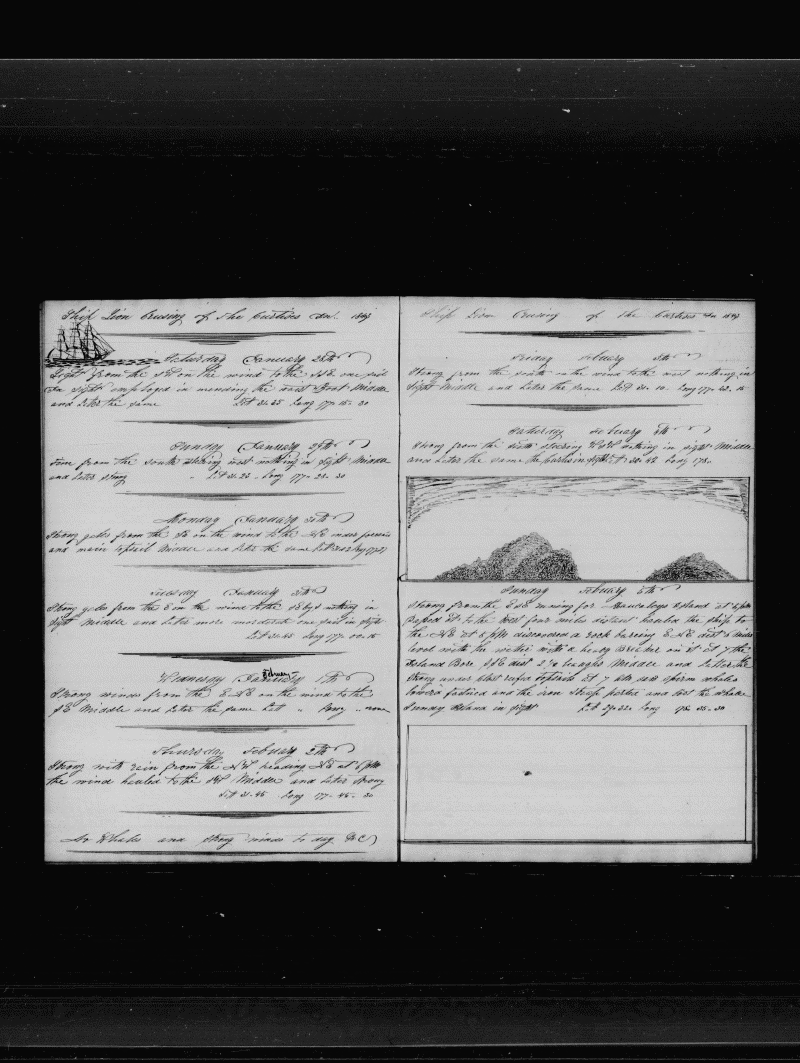 Ship Lion Crusing of the Curtises An. 1843
Saturday January 28th
Light from the SE on the wind to the one sail
In sight employed in mending the Middle
and Later the same Lat 31-25 Long 177-15-30
Sunday January 29th
from the South steering west nothing in sight Middle
and Later strong Lat 31-23 Long 177-23-30
Monday January 30th
Strong gales from the on the wind to the NE under
and main topsail Middle and Later the same Lat Long
Tuesday January 31th
Strong gales from the E on the wind to the nothing in
sight Middle and Later more moderate one sail in sight
Lat Long 177-00-15
Wednesday January February 1th
Strong winds from the ENE on the wind to the
SE Middle and Later the same Lat " Long " none
Thursday February 2th
Strong with rain from the heading at 6 PM
the wind hauled to the Middle and Later strong
Lat 31-45 Long 177-45-30
No Whales and strong winds to day
Ship Lion Crusing of the Curtises An 1843
Friday February 3th
Strong from the north on the wind to the west nothing in
sight Middle and Later the same Lat Long 177-23-15
Saturday February 4th
Strong from the steering nothing in sight Middle
and Later the same the in sight Lat 30-42 Long 178-
Sunday February 5th
Strong from the ESE runing for Island at 4 PM
Passed it to the West four miles distant hauled the ship to
the NE at 5 PM discovered a rock bearing ENE dist 3 miles
level with the water with a heavy Breaker on it at 7 the
Island Bore dist Middle and Latter the
strong under short at 7 AM saw sperm whales
lowerd fastned and the iron and lost the whale
Sunday Island in sight Lat 29-32 Long 178-35-30